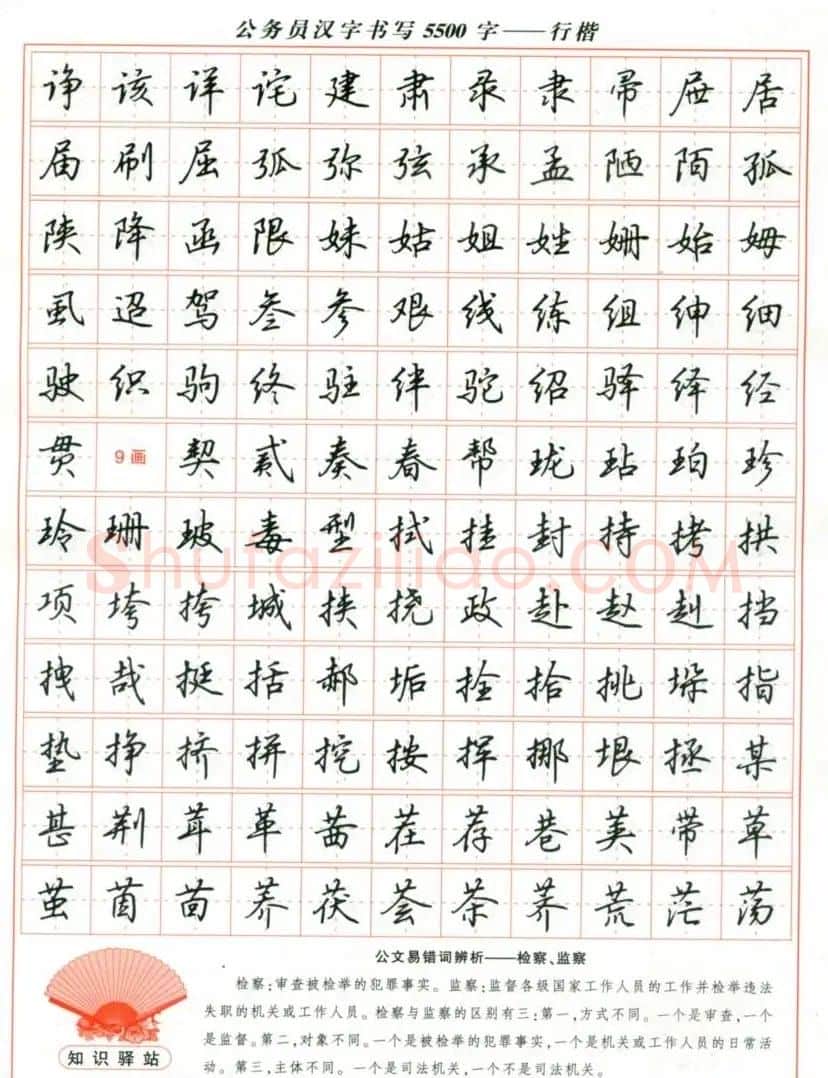 公务员汉字书写5500字——行楷
诤该详诧建肃录隶帚屉居
届刷屈弧弥弦承孟陋陌孤
陕降函限妹姑姐姓姗始姆
虱迢驾叁参艰线练组绅细
驶织驹终驻绊驼绍驿绎经
贯 9画 契贰奏春帮珑玷珀珍
玲珊玻毒型拭挂封持拷拱
项垮挎城挟挠政赴赵赳挡
拽哉挺括郝垢拴拾挑垛指
垫挣挤拼挖按挥挪垠拯某
甚荆茸革茜茬荐巷荚带草
茧茵茴荞茯荟茶荠荒茫荡
ShufaziLiao.COM
公文易错词辨析——检察、监察
检察:审查被检举的犯罪事实。监察:监督各级国家工作人员的工作并检举违法
失职的机关或工作人员。检察与监察的区别有三:第一,方式不同。一个是审查,一个
是监督。第二,对象不同。一个是被检举的犯罪事实,一个是机关或工作人员的日常活
动。第三,主体不同。一个是司法机关,一个不是司法机关。
知识驿站